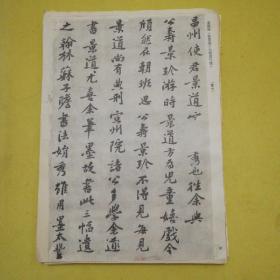 昌州使君景道宗秀也往余與
公壽景珍游時景道方為兒童嬉戲今
頎然在朝班思公壽景珍不得見每見
景道尚有典刑宣州院諸公多學余
書景道尤喜余筆墨故書此三幅遺
之翰林蘇子瞻書法娟秀雖用墨太豐